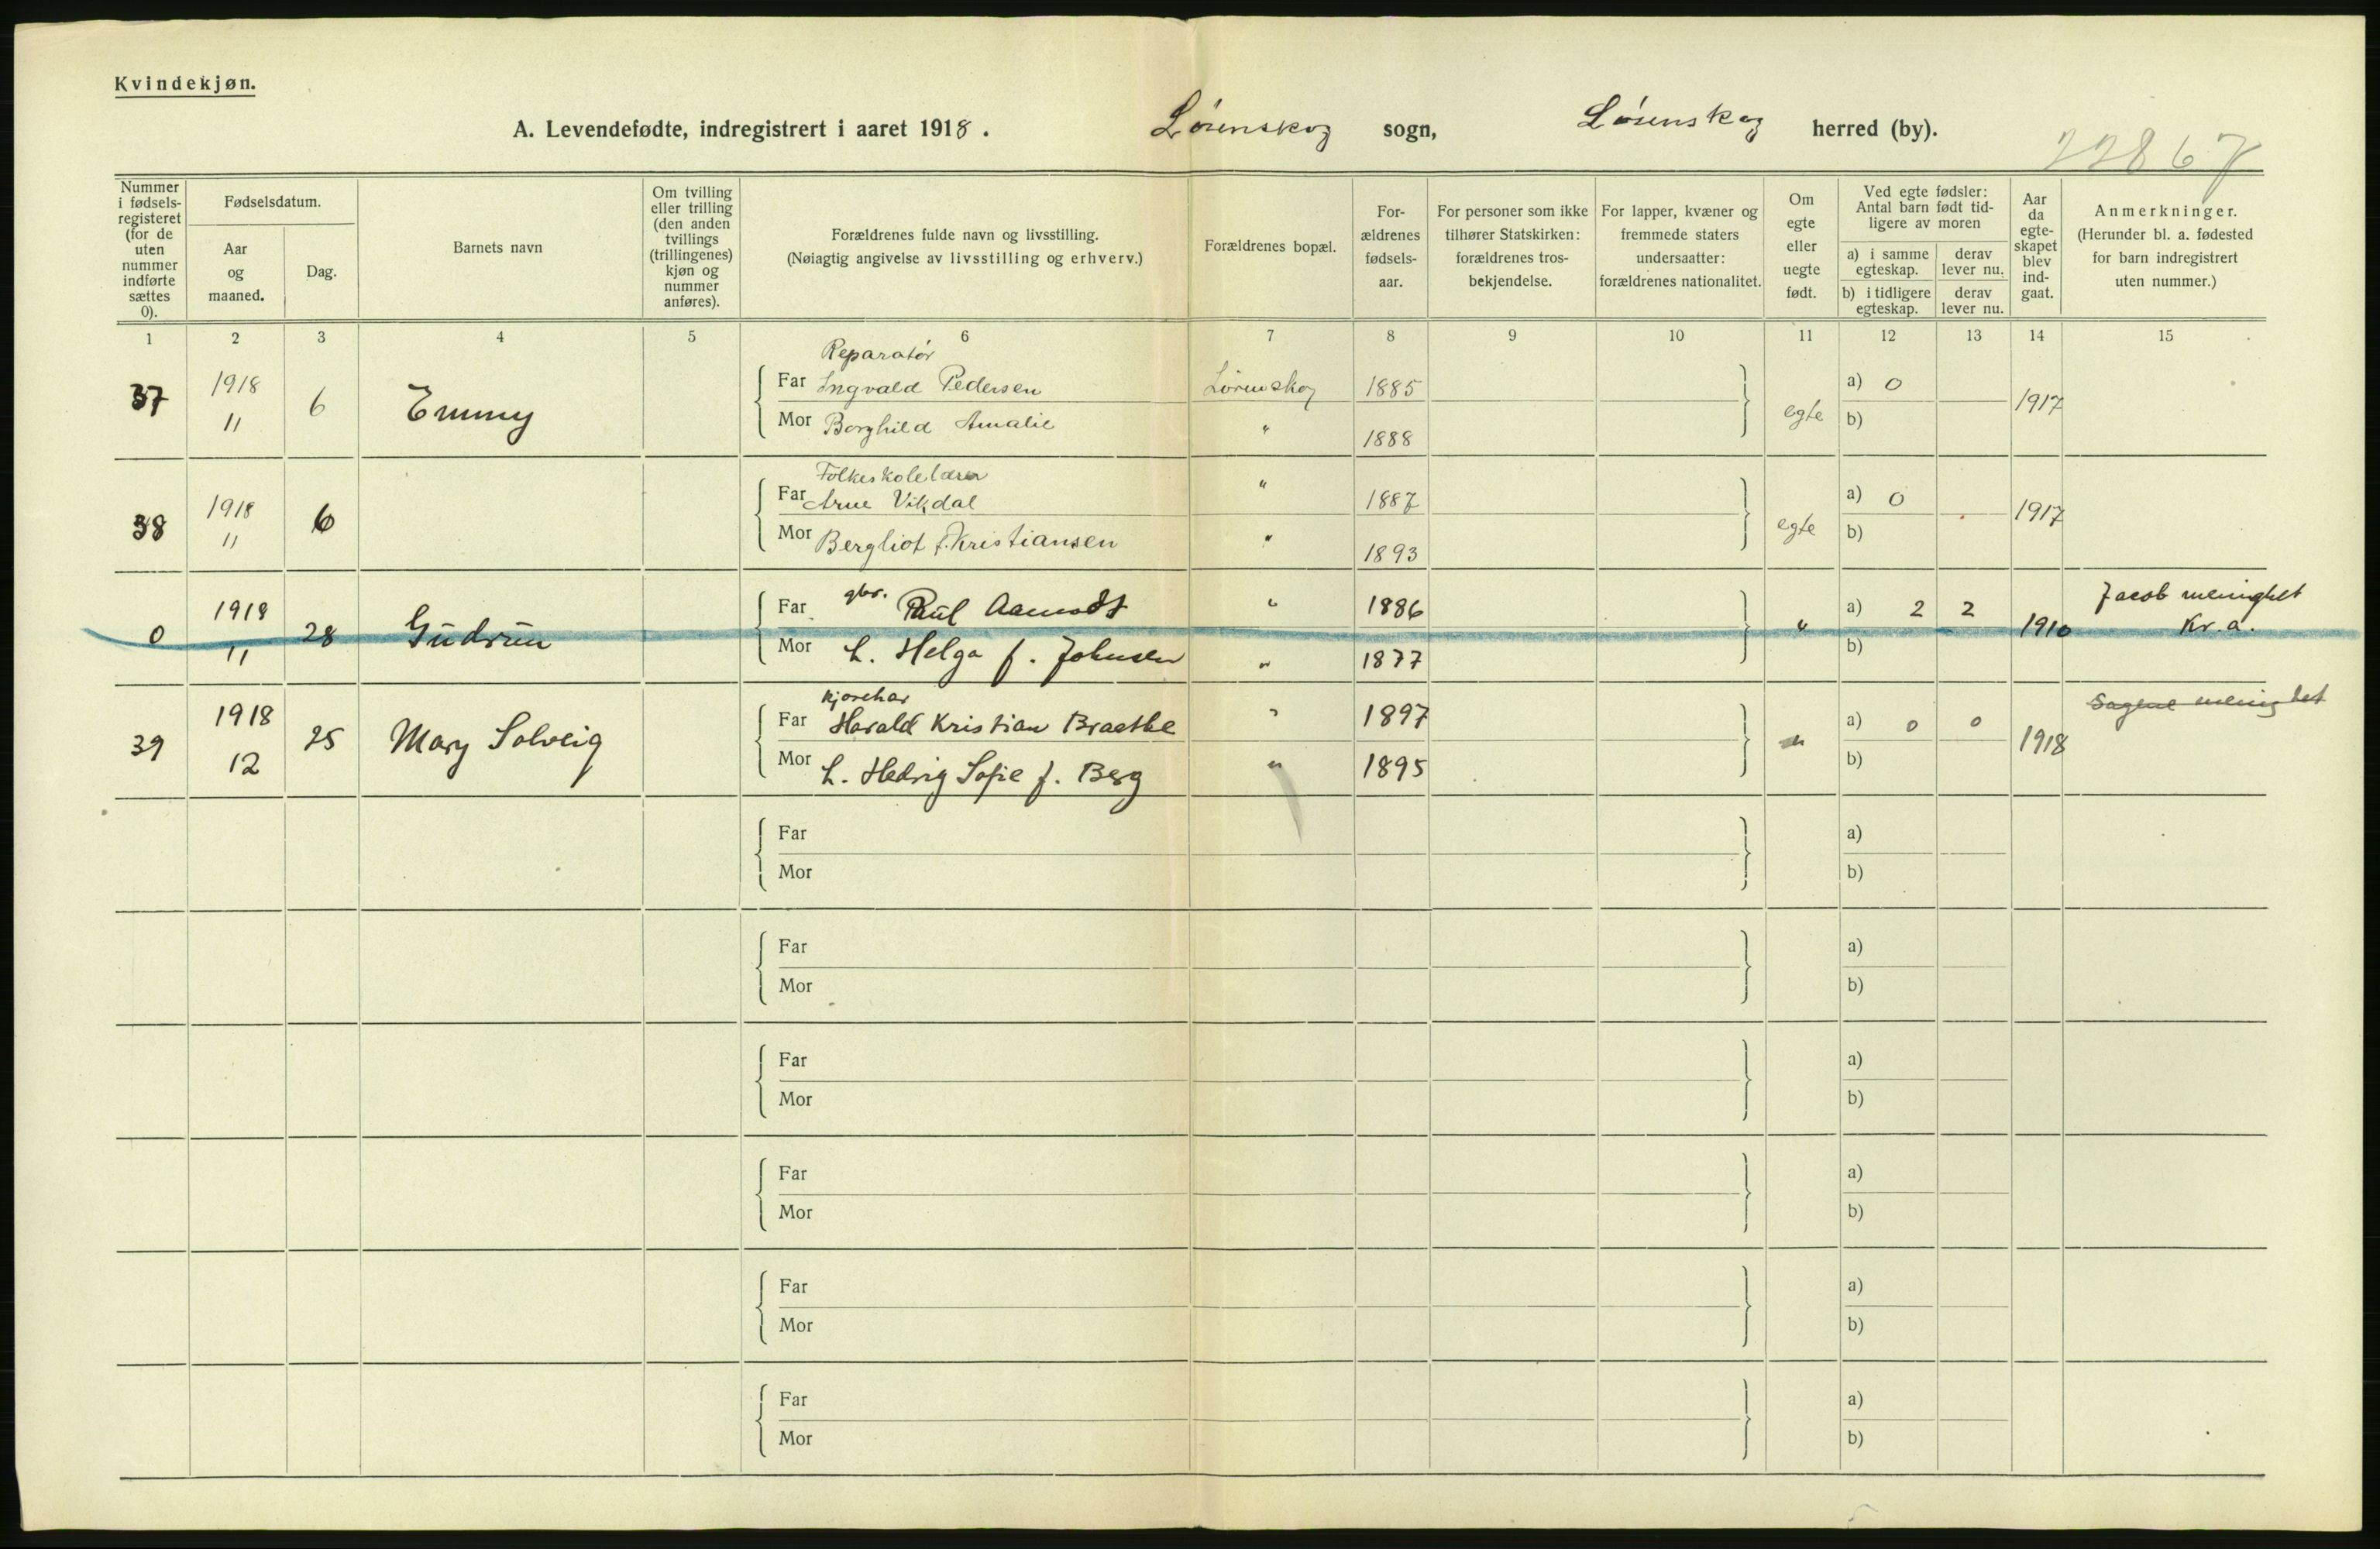 Kvindekjøn.
A. Levendefødte, indregistrert i aaret 1918. Lørenskog sogn, Lørenskog herred (by).
22867
Nummer i fødsels-registeret (for de uten nummer indførte sættes 0).
Fødselsdatum.
Aar og maaned.
Dag.
Barnets navn
Om tvilling eller trilling (den anden tvillings (trillingenes) kjøn og nummer anføres).
Forældrenes fulde navn og livsstilling.
(Nøiagtig angivelse av livsstilling og erhverv.)
Forældrenes bopæl.
For-ældrenes fødsels-aar.
For personer som ikke tilhører Statskirken: forældrenes tros-bekjendelse.
For lapper, kvæner og fremmede staters undersaatter: forældrenes nationalitet.
Om egte eller uegte født.
Ved egte fødsler: Antal barn født tid-ligere av moren
a) i samme egteskap.
derav lever nu.
b) i tidligere egteskap.
derav lever nu.
Aar da egte-skapet blev ind-gaat.
Anmerkninger.
(Herunder bl. a. fødested for barn indregistrert uten nummer.)
1 2 3 4 5 6 7 8 9 10 11 12 13 14 15
Reparatør
37 1918 11 6 Emmy Far Ingvald Pedersen Lørenskog 1885 egte a) 0 1917
Mor Borghild Amalie " 1888 b)
Folkeskolelærer
38 1918 11 6 Far Arne Vikdal " 1887 egte a) 0 1917
Mor Bergliot f. Kristiansen " 1893 b)
0 1918 11 28 Gudrun Far gbr. Paul Aamodt " 1886 " a) 2 2 1910 Jacob menighet
Kr.a.
Mor h. Helga f. Johnsen " 1877 b)
kjørekar
39 1918 12 25 Mary Solveig Far Harald Kristian Braathe " 1897 " a) 0 0 1918 Sagene menighet
Mor h. Hedvig Sofie f. Berg " 1895 b)
Far a)
Mor b)
Far a)
Mor b)
Far a)
Mor b)
Far a)
Mor b)
Far a)
Mor b)
Far a)
Mor b)